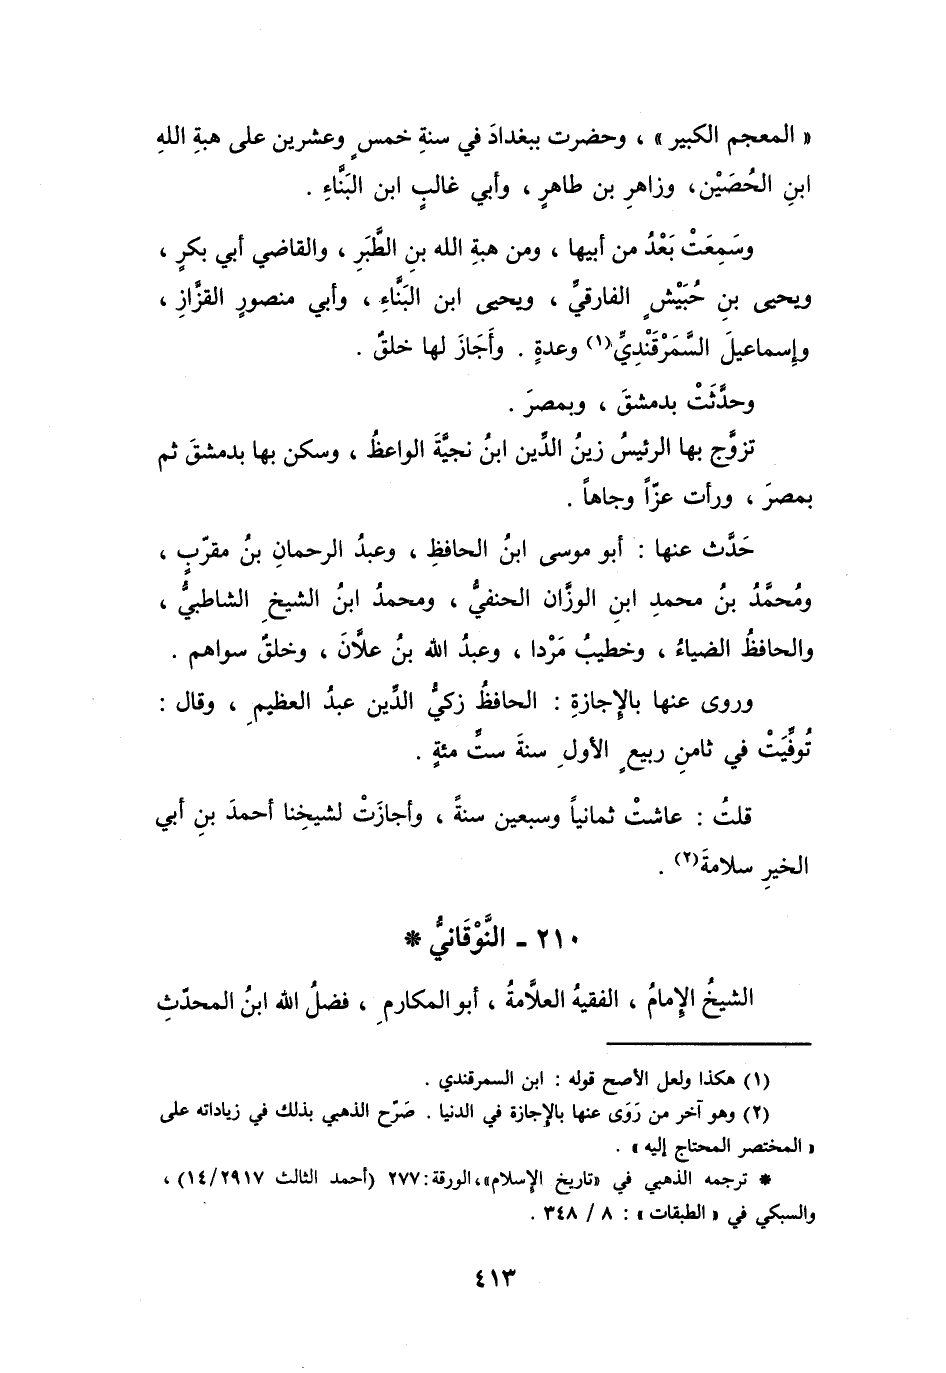 « المعجم الكبير » ، وحضرت ببغدادَ في سنةِ خمسٍ وعشرين على هبةِ اللهِ
ابنِ الحُصَيْن، وزاهرِ بن طاهرٍ ، وأبي غالبٍ ابن البَنَّاءِ .
وسَمِعَتْ بَعْدُ من أبيها ، ومن هبةِ الله بنِ الطَّبَرِ ، والقاضي أبي بكرٍ ،
ويحيى بنِ حُبَيْشٍ الفارقيِّ ، ويحيى ابن البَنَّاءِ ، وأبي منصورٍ القزَّازِ ،
وإسماعيلَ السَّمَرْقَنْدِيِّ(١) وعدةٍ . وأَجَازَ لها خلقٌ .
وحدَّثَتْ بدمشقَ ، وبمصرَ .
تزوَّج بها الرئيسُ زينُ الدِّين ابنُ نجيَّةَ الواعظُ ، وسكن بها بدمشقَ ثم
بمصرَ ، ورأت عزّاً وجاهاً .
حَدَّث عنها : أبو موسى ابنُ الحافظِ ، وعبدُ الرحمانِ بنُ مقرّبٍ ،
ومُحمَّدُ بنُ محمدِ ابنِ الوزَّان الحنفيُّ ، ومحمدُ ابنُ الشيخِ الشاطبيُّ ،
والحافظُ الضياءُ ، وخطيبُ مَرْدا ، وعبدُ الله بنُ علاَّنَ ، وخلقٌ سواهم .
وروى عنها بالإِجازةِ : الحافظُ زكيُّ الدِّين عبدُ العظيمِ ، وقال :
تُوفِّيَتْ في ثامنِ ربيعٍ الأولِ سنةَ ستِّ مئةٍ .
قلتُ : عاشتْ ثمانياً وسبعين سنةً ، وأجازَتْ لشيخِنا أحمدَ بنِ أبي
الخيرِ سلامةَ(٢) .
٢١٠ - النَّوْقَانيُّ *
الشيخُ الإِمامُ ، الفقيهُ العلاَّمةُ ، أبو المكارمِ ، فضلُ الله ابنُ المحدّثِ
(١) هكذا ولعل الأصح قوله : ابن السمرقندي .
(٢) وهو آخر من رَوَى عنها بالإجازة في الدنيا . صَرّح الذهبي بذلك في زياداته على
« المختصر المحتاج إليه » .
* ترجمه الذهبي في «تاريخ الإسلام»، الورقة: ٢٧٧ (أحمد الثالث ١٤/٢٩١٧) ،
والسبكي في « الطبقات » : ٨ / ٣٤٨ .
٤١٣